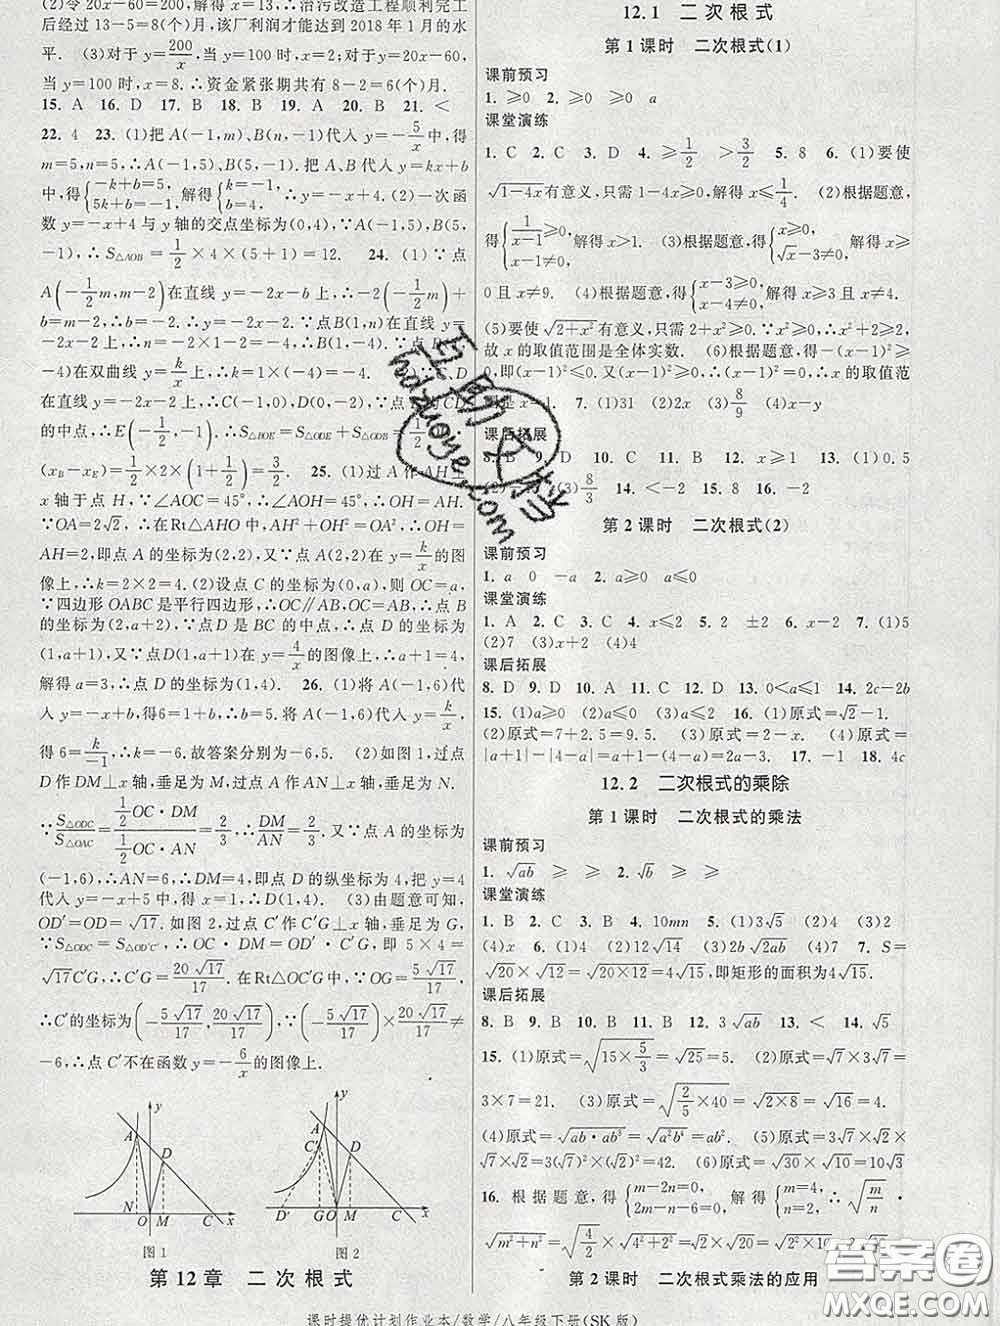 (2)令 20x-60=200,解得 x=13,∴治污改造工程顺利完成
后经过 13-5=8(个)月,该厂利润才能达到 2018 年 1 月的水
平. (3)对于 y=200/x,当 y=100 时,x=2;对于 y=20x-60,
当 y=100 时,x=8,∴资金紧张期共有 8-2=6(个)月.
15. A 16. D 17. D 18. B 19. A 20. B 21. <
22. 4 23. (1)把 A(-1,m)、B(n,-1)代入 y=-5/x中,得
m=5,n=5,∴A(-1,5),B(5,-1).把 A、B代入 y=kx+b
中,得{-k+b=5, 5k+b=-1.解得{k=-1, b=4.∴y=-x+4.(2)一次函
数 y=-x+4 与 y 轴的交点坐标为(0,4),∵A(-1,5),B(5,
-1),∴S△AOB=1/2×4×(5+1)=12. 24. (1)∵点
A(-1/2m,m-2)在直线 y=-2x-b 上,∴-2(-1/2m)+
b=m-2,∴b=-2,∴y=-2x-2.∵点B(1,n)在直线 y=
-2x-2 上,∴n=-2×1-2=-4,∴B(1,-4).
-4)在双曲线 y=k/x
在直线 y=-2x-2 上,∴C(-1,0),D(0,-2),
的中点,∴E(-1/2,-1),∴S△BOE=S△ODE+S△ODB=1/2·
(xB-xE)=1/2×2×(1+1/2)=3/2. 25. (1)过 A 作 AH⊥
x 轴于点 H,∵∠AOC=45°,∴∠AOH=45°,∴AH=OH.
∵OA=2√2,∴在Rt△AHO中,AH²+OH²=OA²,∴OH=
AH=2,即点 A 的坐标为(2,2),又∵点 A 在 y=k/x的图
像上,∴k=2×2=4.(2)设点 C 的坐标为(0,a),则 OC=a.
∵四边形 OABC 是平行四边形,∴OC∥AB,OC=AB,∴点 B
的坐标为(2,a+2);∵点D 是 BC 的中点,∴点 D 的坐标为
(1,a+1),又∵点 D(1,a+1)在 y=4/x的图像上,∴a+1=4,
解得 a=3,∴点 D 的坐标为(1,4). 26. (1)将 A(-1,6)代
入 y=-x+b,得6=1+b,∴b=5.将 A(-1,6)代入 y=k/x,
得 6=k/-1,∴k=-6.故答案分别为-6,5. (2)如图 1,过点
D 作 DM⊥x 轴,垂足为 M,过点 A 作 AN⊥x 轴,垂足为 N.
∵S△ODC/S△OAC=1/2OC·DM/1/2OC·AN=2/3,∴DM/AN=2/3.又∵点 A 的坐标为
(-1,6),∴AN=6,∴DM=4,即点 D 的纵坐标为 4,把 y=4
代入 y=-x+5 中,得 x=1,∴D(1,4). (3)由题意可知,
OD′=OD=√17.如图 2,过点 C′作 C′G⊥x 轴,垂足为 G,
∵S△ODC=S△OD′C′,∴OC·DM=OD′·C′G,即 5×4=
√17C′G,∴C′G=20√17/17.在Rt△OC′G 中,∵OG=5√17/17,
∴C′的坐标为(-5√17/17,20√17/17),∵(-5√17/17)×20√17/17≠
-6,∴点 C′不在函数 y=-6/x的图像上.
y A D N O M C x
图 1
y A C′ D D′ G O M C x
图 2
第 12 章 二 次 根 式
12.1 二 次 根 式
第 1 课时 二次根式(1)
课前预习
1. ≥0 2. ≥0 ≥0 a
课堂演练
1. C 2. C 3. D 4. ≥1/2 >3/2 5. 8 6. (1)要使
√1-4x有意义,只需 1-4x≥0,解得 x≤1/4. (2)根据题意,
得{1/x-1≥0, x-1≠0,解得 x>1. (3)根据题意,得{x≥0, √x-3≠0,解得 x≥
0且 x≠9. (4)根据题意,得{x-3≥0, x-4≠0,解得 x≥3 且 x≠4.
(5)要使√2+x²有意义,只需 2+x²≥0.∵x²≥0,∴x²+2≥2,
故 x 的取值范围是全体实数. (6)根据题意,得-(x-1)²≥
0,即(x-1)²≤0.又∵(x-1)²≥0,∴x=1,∴x 的取值范
围是x=1. 7. (1)31 (2)2x (3)8/9 (4)x-y
课后拓展
8. B 9. D 10. C 11. B 12. x≥1 13. (1)0.5
(3)8/3 14. <-2 15. 8 16. -2
第 2 课时 二次根式(2)
课前预习
1. a 0 -a 2. a≥0 a≤0
课堂演练
1. A 2. C 3. C 4. x≤2 5. 2 ±2 6. x-2 7. (1)5
(2)7 (3)x+2 (4)4
课后拓展
8. D 9. D 10. D 11. A 12. 7 13. 0<a≤1 14. 2c-2b
15. (1)a≥0 (2)a≤0 (3)a≤2 16. (1)原式=√2-1.
(2)原式=7+2.5=9.5. (3)原式=2-x. (4)原式=
|a+1|-|1-a|=a+1-(1-a)=2a. 17. -1 18. 4c
12.2 二次根式的乘除
第 1 课时 二次根式的乘法
课前预习
1. √ab ≥ ≥ 2. √b ≥ ≥
课堂演练
1. B 2. C 3. B 4. 10mn 5. (1)3√5 (2)2 (3)2
(4)x 6. (1)10 (2)12√14 (3)2b√2ab (4)7 7. S=
√20×√12=√20×12=4√15,即矩形的面积为4√15.
课后拓展
8. B 9. B 10. B 11. B 12. 3√ab 13. < 14. √5
15. (1)原式=√15×5/3=√25=5. (2)原式=√7×3×√7=
3×7=21. (3)原式=√2/5×40=√2×8=√16=4.
(4)原式=√ab·ab³=√a²b⁴=ab². (5)原式=3√7×√2×
√7×√2=3(√7)²×(√2)²=42. (6)原式=√30×√10=10√3.
16. 根据题意,得{m-2n=0, 2m-6-n=0,解得{m=4, n=2,∴√m/n·
√m²+n²=√4/2×√4²+2²=√2×√20=√2×20=2√10.
第 2 课时 二次根式乘法的应用
课时提优计划作业本/数学/八年级下册(SK 版)
互助文档
hdzuoye.com
答案圈
MXQE.COM